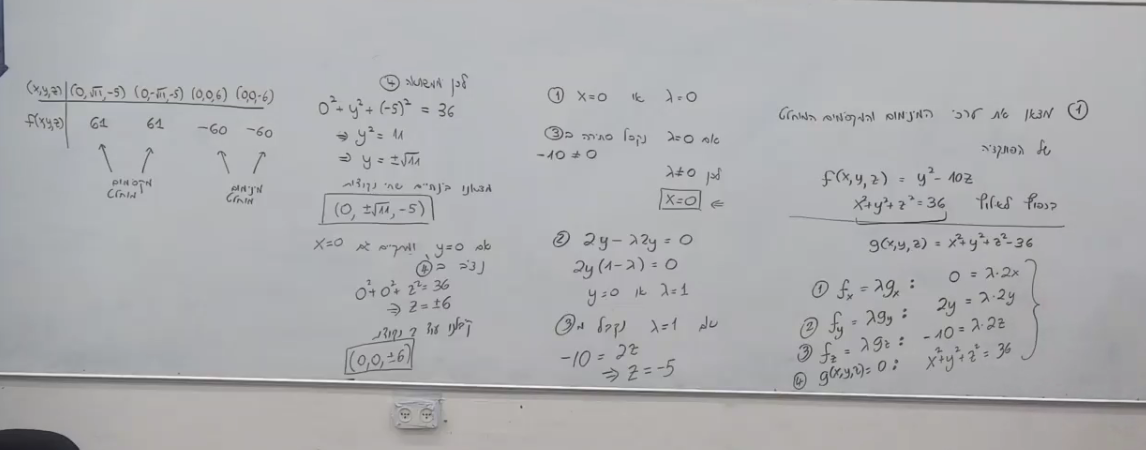 ① מצאו את ערכי המינימום והמקסימום המוחלט
של הפונקציה
f(x,y,z) = y² - 10z
בכפוף לאילוץ x²+y²+z² = 36
g(x,y,z) = x²+y²+z²-36
① fₓ = λgₓ : 0 = λ·2x
② f_y = λg_y : 2y = λ·2y
③ f_z = λg_z : -10 = λ·2z
④ g(x,y,z)=0 : x²+y²+z² = 36
① x=0 או λ=0
אם λ=0 נקבל סתירה ב③
-10 ≠ 0
לכן λ≠0
⇐ x=0
② 2y-λ2y = 0
2y(1-λ) = 0
y=0 או λ=1
אם λ=1 נקבל מ③
-10 = 2z
⇒ z=-5
לכן ④
0²+y²+(-5)² = 36
⇒ y² = 11
⇒ y = ±√11
נקודות
(0, ±√11, -5)
אם y=0, x=0
④
0²+0²+z²=36
⇒ z=±6
קבלנו עוד 2 נקודות
(0,0,±6)
(x,y,z) (0,√11,-5) (0,-√11,-5) (0,0,6) (0,0,-6)
f(x,y,z) 61 61 -60 -60
מקסימום
מוחלט
מינימום
מוחלט